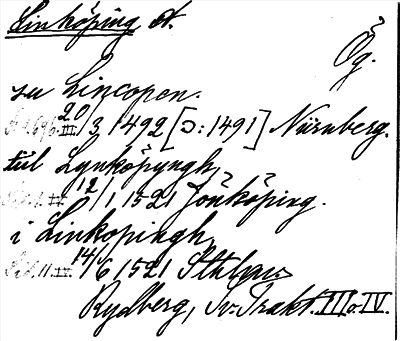 Linköping st.
Ög.
zu Lincopen.
20/3 1492 [ɔ: 1491] Nürnberg.
till Lynköpyngh,
12/1 1521 Jönköping.
i Linkopingh,
14/6 1521 Sthlm
Rydberg, Sv. Trakt. III o. IV.